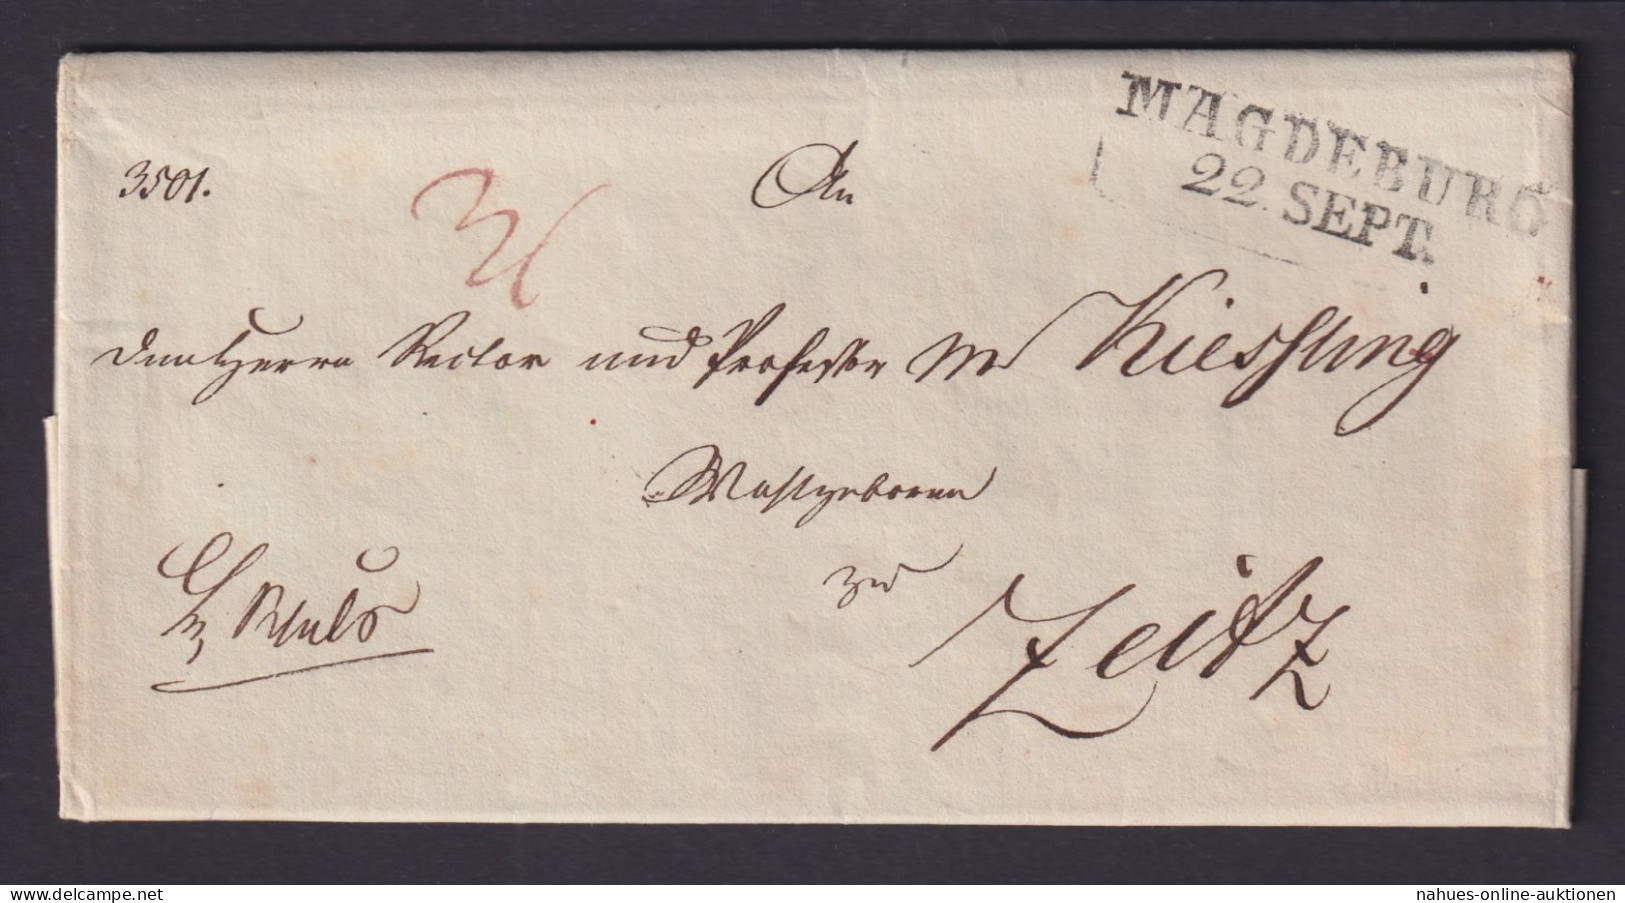 MAGDEBURG
22. SEPT.
3501.
An
den Herrn Rector und Professor M Kiessling
Wohlgeboren
zu
Zeitz
nahues-online-auktionen